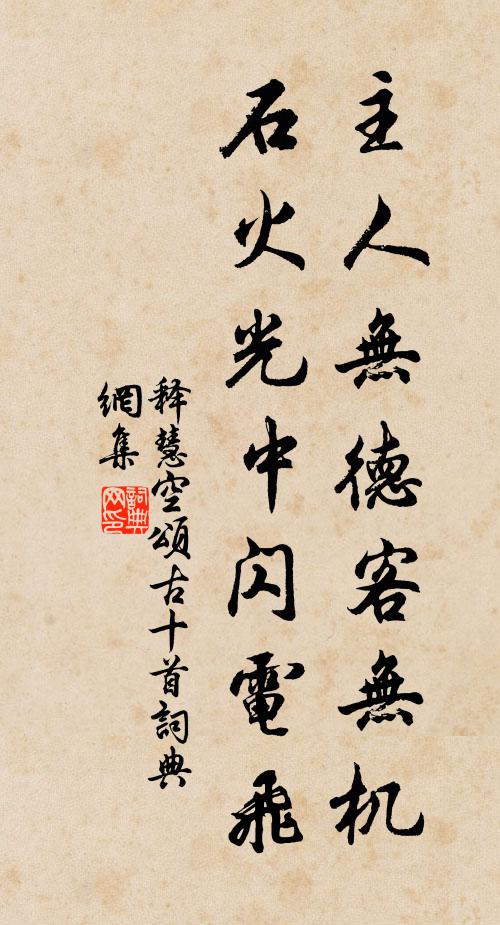 主人無德客無机
石火光中閃電飛
释慧空頌古十首詞典
網集
詞典网印